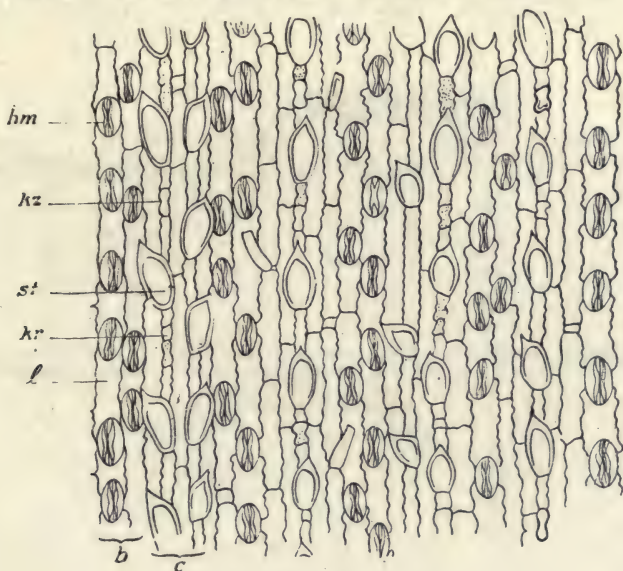 hm
kz
st
kr
l
b c